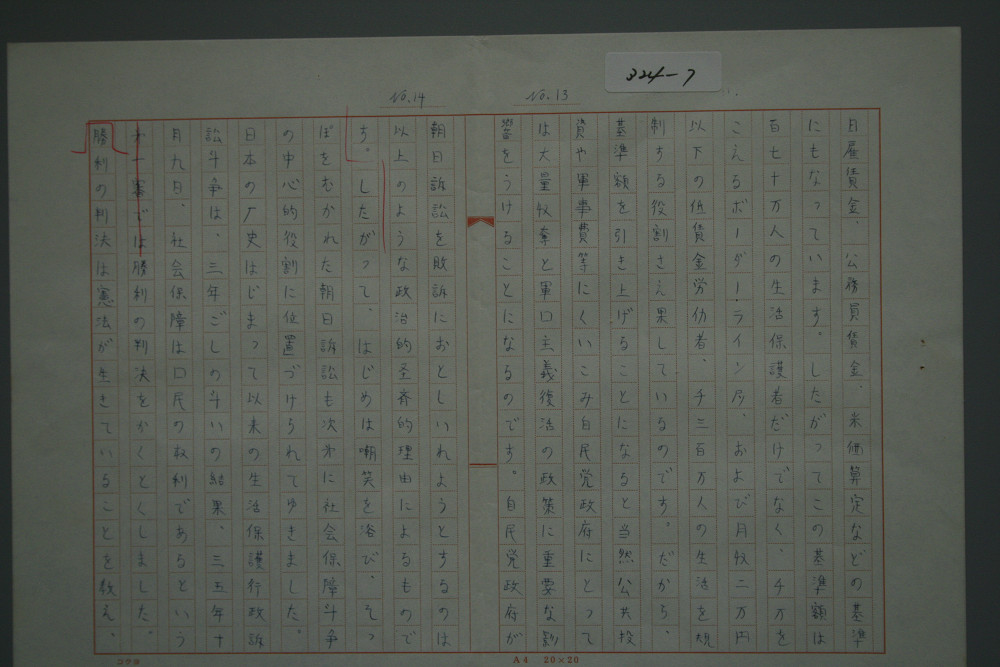 324-7
No.13
日雇賃金、公務員賃金、米価算定などの基準
にもなっています。したがってこの基準額は
百七十万人の生活保護者だけでなく、千万を
こえるボーダー・ライン層、および月収二万円
以下の低賃金労仂者、千三百万人の生活を規
制する役割さえ果しているのです。だから、
基準額を引き上げることになると当然公共投
資や軍事費等にくいこみ自民党政府にとって
は大量収奪と軍口主義復活の政策に重要な影
響をうけることになるのです。自民党政府が
No.14
朝日訴訟を敗訴におとしいれようとするのは
以上のような政治的圣済的理由によるもので
す。したがって、はじめは嘲笑を浴び、そっ
ぽをむかれた朝日訴訟も次才に社会保障斗争
の中心的役割に位置づけられてゆきました。
日本の厂史はじまって以来の生活保護行政訴
訟斗争は、三年ごしの斗いの結果、三五年十
月九日、社会保障は口民の权利であるという
才十審では勝利の判決をかくとくしました。
勝利の判決は憲法が生きていることを教え、
コクヨ
A4 20×20